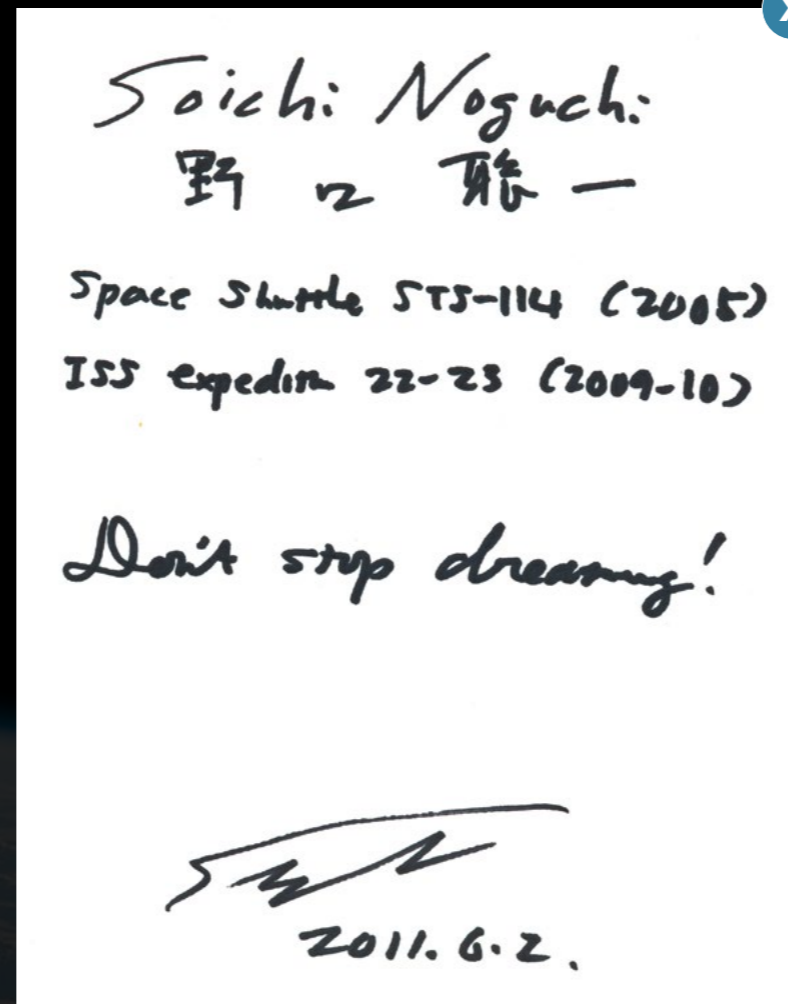 Soichi Noguchi
野口聡一
Space Shuttle STS-114 (2005)
ISS expedition 22-23 (2009-10)
Don't stop dreaming!
2011.6.2.